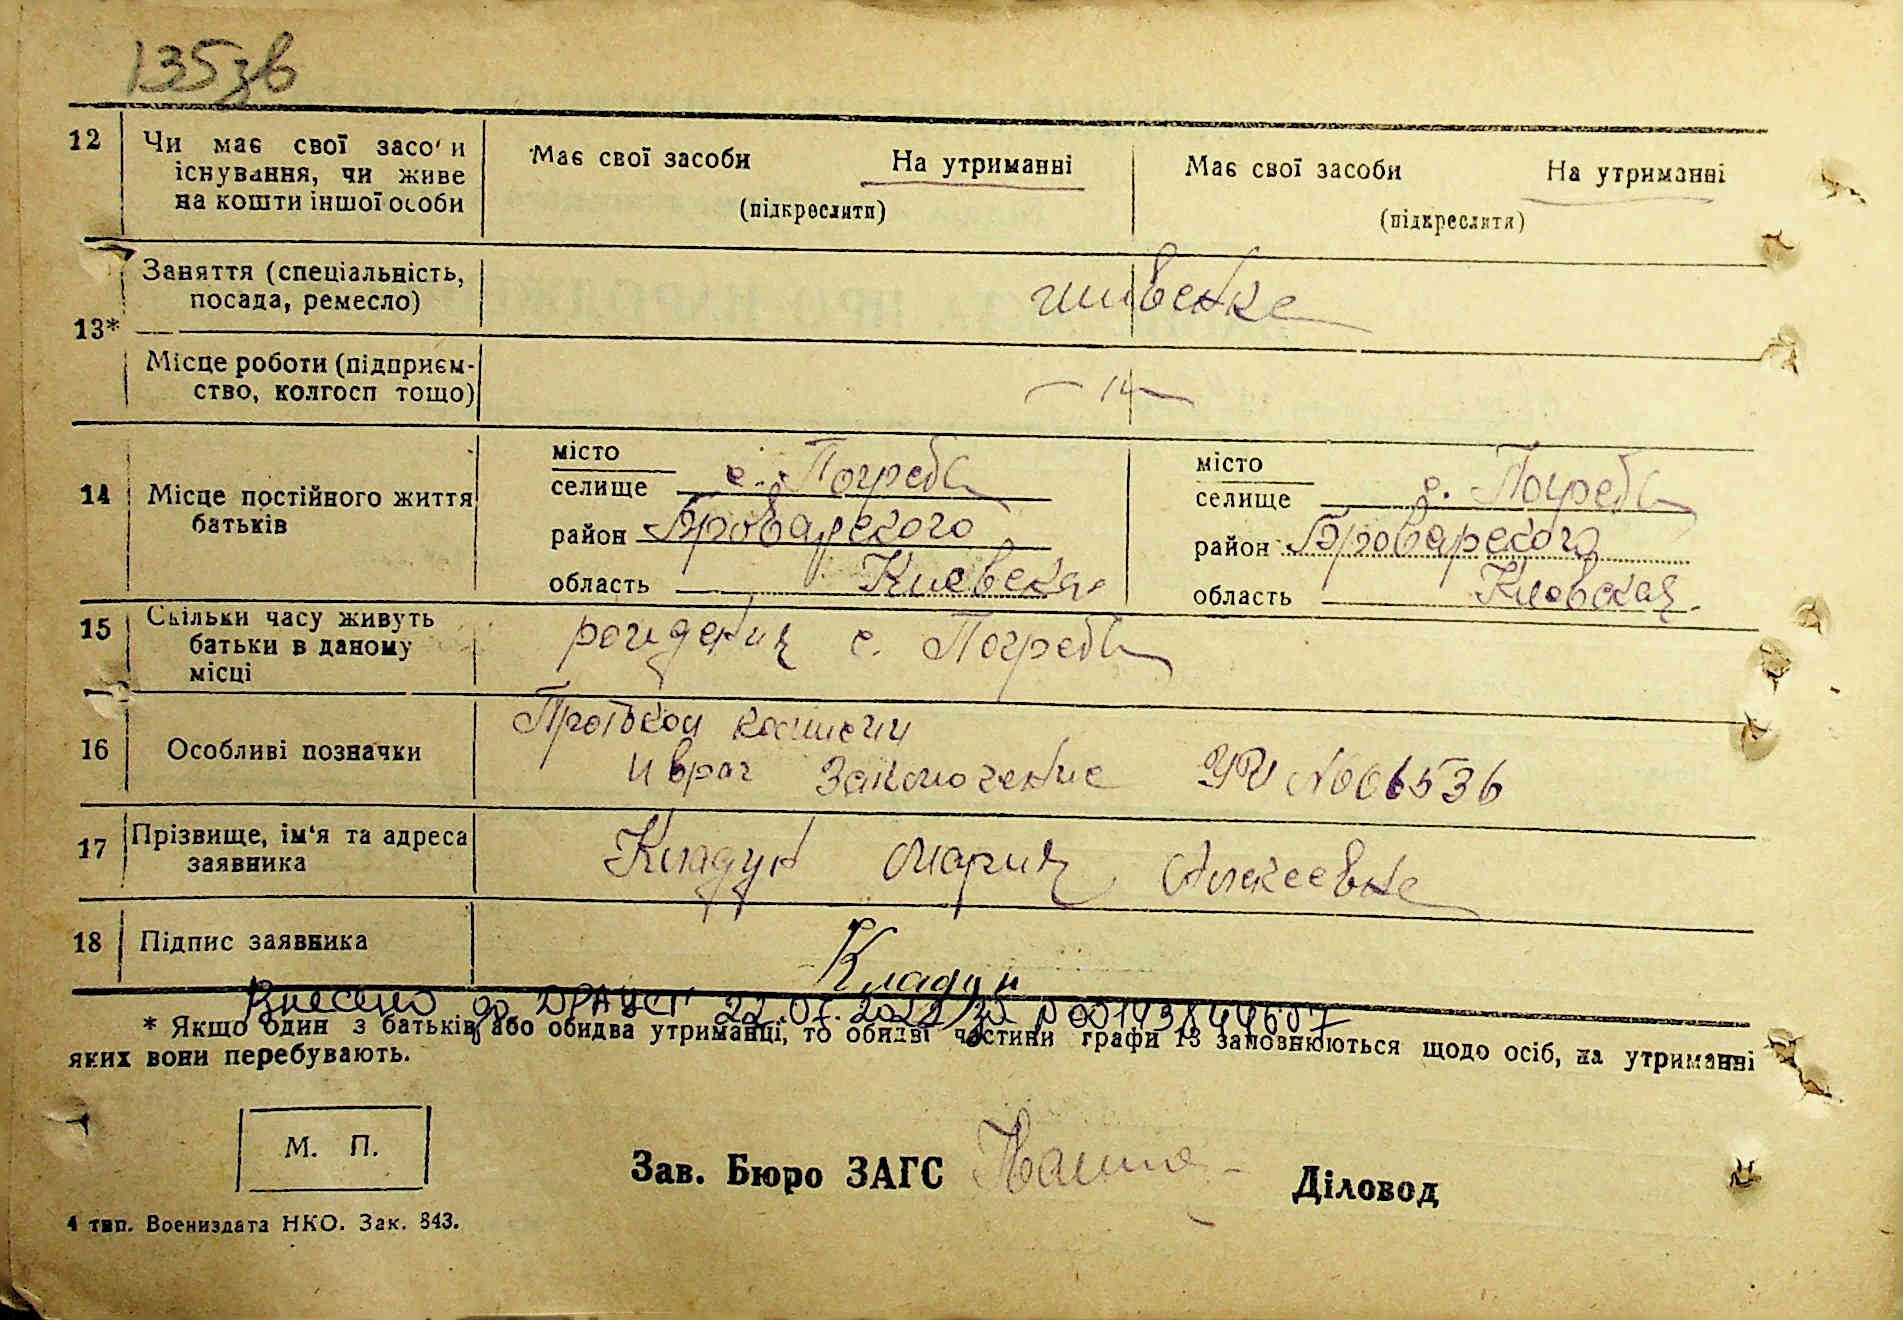 135зв
12 Чи має свої засоби
існування, чи живе
на кошти іншої особи
Має свої засоби На утриманні
(підкреслити)
Має свої засоби На утриманні
(підкреслити)
13*
Заняття (спеціальність,
посада, ремесло)
Місце роботи (підприєм-
ство, колгосп тощо)
— " —
14 Місце постійного життя
батьків
місто
селище с. Погребы
район Броварского
область Киевская
місто
селище с. Погребы
район Броварского
область Киевская
15 Скільки часу живуть
батьки в даному
місці
рождения с. Погребы
16 Особливі позначки
Протокол комисии
и врач Заключение № 006536
17 Прізвище, ім'я та адреса
заявника
Кладун Мария Алексеевна
18 Підпис заявника
Кладун
Внесено до ДРАЦСГ 22.07.2022 за № 00143844607
* Якщо один з батьків або обидва утриманці, то обидві частини графи 13 заповнюються щодо осіб, на утриманні
яких вони перебувають.
М. П.
Зав. Бюро ЗАГС
Діловод
4 тип. Воениздата НКО. Зак. 843.